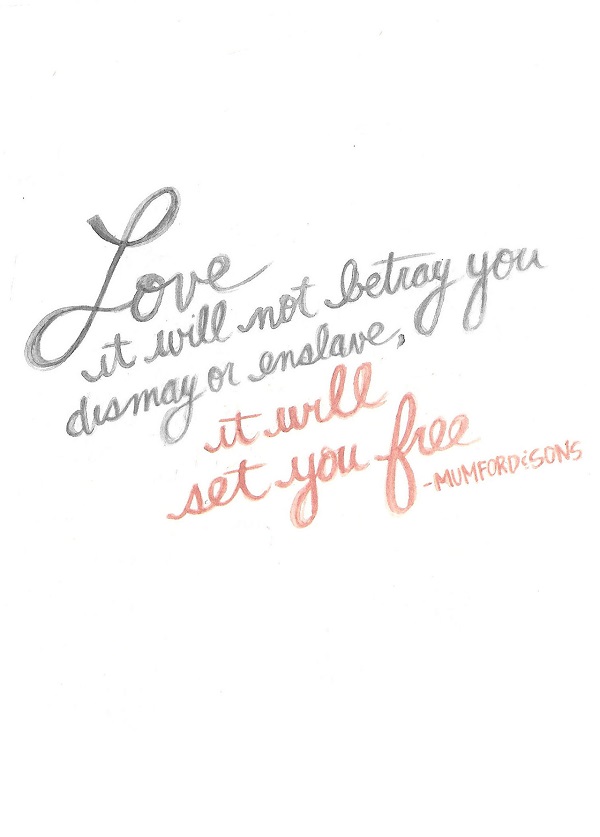 Love
it will not betray you
dismay or enslave,
it will
set you free
-MUMFORD&SONS